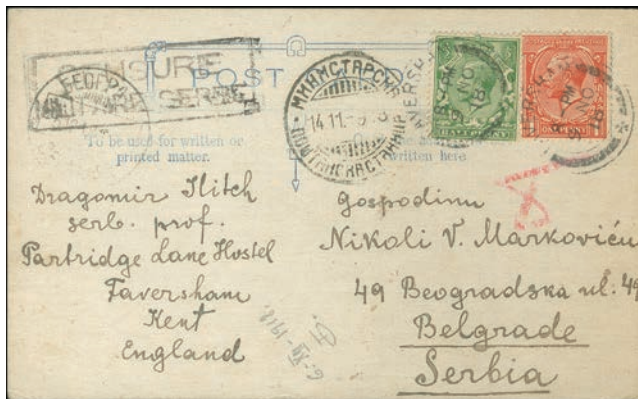 CENSURE
SERBE
БЕОГРАД
POST CARD
МИНИСТАРСКА
14 11.
FAVERSHAM
NO
18
HALFPENNY
FAVERSHAM
PM
NO
18
ONE PENNY
To be used for written or
printed matter.
written here
Dragomir Ilitch
serb. prof.
Partridge Lane Hostel
Faversham
Kent
England
Gospodinu
Nikoli V. Markoviću
49 Beogradska ul. 49
Belgrade
Serbia
6-XII-1918.